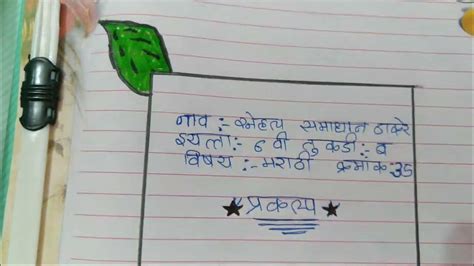 नाव :- स्नेहल समाधान ठाकरे
इयत्ता :- ८ वी तुकडी :- ब
विषय :- मराठी क्रमांक :- 35
★ प्रकल्प ★